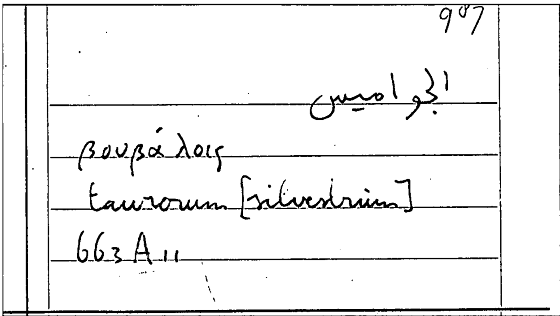 907
الجواميس
βουβάλοις
taurorum [silvestrium]
663 A 11